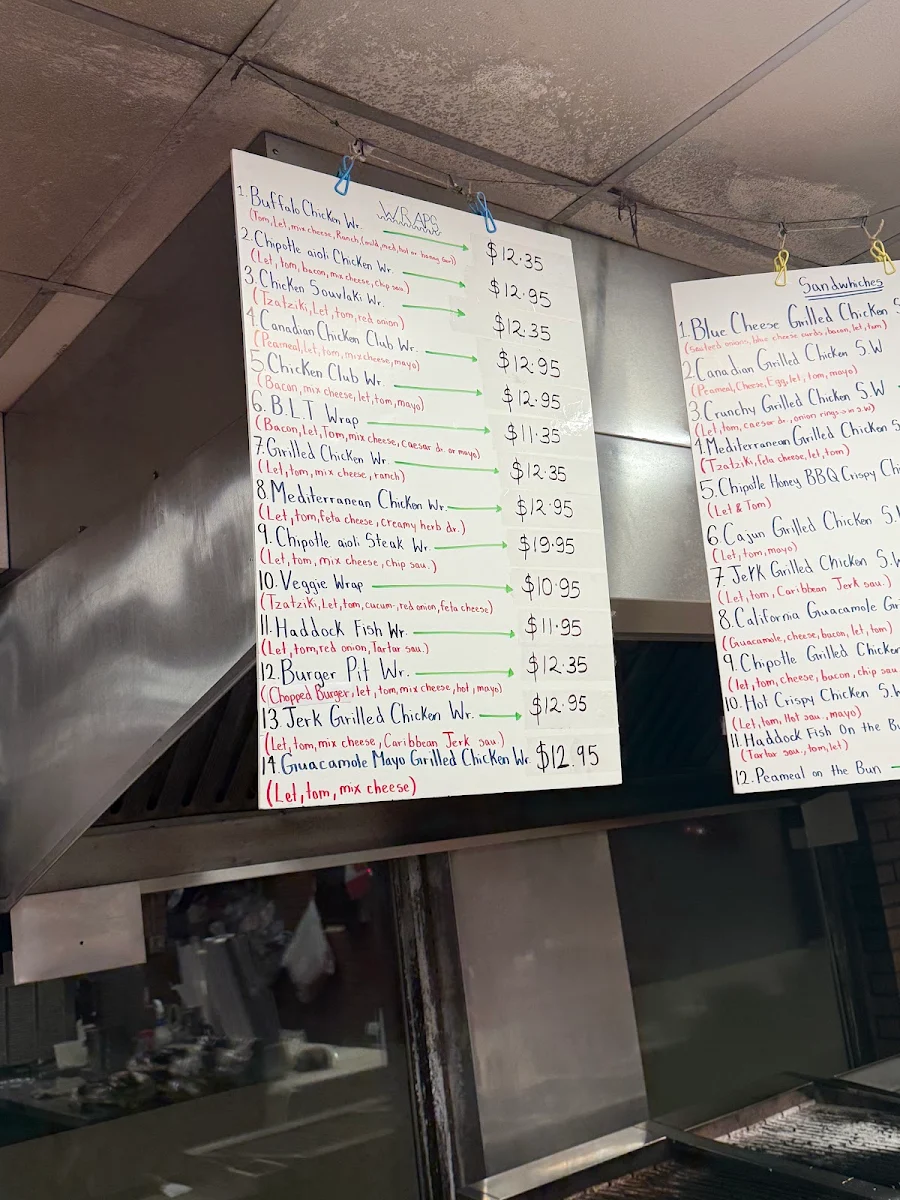 WRAPS
1. Buffalo Chicken Wr. $12.35
(Tom, Let, mix cheese, Ranch, (mild, med, hot or honey Gar))
2. Chipotle aioli Chicken Wr. $12.95
(Let, tom, bacon, mix cheese, chip sau.)
3. Chicken Souvlaki Wr. $12.35
(Tzatziki, Let, tom, red onion)
4. Canadian Chicken Club Wr. $12.95
(Peameal, let, tom, mix cheese, mayo)
5. Chicken Club Wr. $12.95
(Bacon, mix cheese, let, tom, mayo)
6. B.L.T Wrap $11.35
(Bacon, Let, Tom, mix cheese, caesar dr. or mayo)
7. Grilled Chicken Wr. $12.35
(Let, tom, mix cheese, ranch)
8. Mediterranean Chicken Wr. $12.95
(Let, tom, feta cheese, creamy herb dr.)
9. Chipotle aioli Steak Wr. $19.95
(Let, tom, mix cheese, chip sau.)
10. Veggie Wrap $10.95
(Tzatziki, Let, tom, cucum-, red onion, feta cheese)
11. Haddock Fish Wr. $11.95
(Let, tom, red onion, Tartar sau.)
12. Burger Pit Wr. $12.35
(Chopped Burger, let, tom, mix cheese, hot, mayo)
13. Jerk Grilled Chicken Wr. $12.95
(Let, tom, mix cheese, Caribbean Jerk sau.)
14. Guacamole Mayo Grilled Chicken Wr. $12.95
(Let, tom, mix cheese)
Sandwhiches
1. Blue Cheese Grilled Chicken S
(Sauteed onions, blue cheese curds, bacon, let, tom)
2. Canadian Grilled Chicken S.W
(Peameal, Cheese, Egg, let, tom, mayo)
3. Crunchy Grilled Chicken S.W
(Let, tom, caesar dr., onion rings in S.W)
4. Mediterranean Grilled Chicken S
(Tzatziki, feta cheese, let, tom)
5. Chipotle Honey BBQ Crispy Chi
(Let & Tom)
6. Cajun Grilled Chicken S.
(Let, tom, mayo)
7. Jerk Grilled Chicken S.W
(Let, tom, Caribbean Jerk sau.)
8. California Guacamole Gr
(Guacamole, cheese, bacon, let, tom)
9. Chipotle Grilled Chicken
(let, tom, cheese, bacon, chip sau
10. Hot Crispy Chicken S.
(Let, tom, Hot sau., mayo)
11. Haddock Fish On the Bu
(Tartar sau., tom, let)
12. Peameal on the Bun